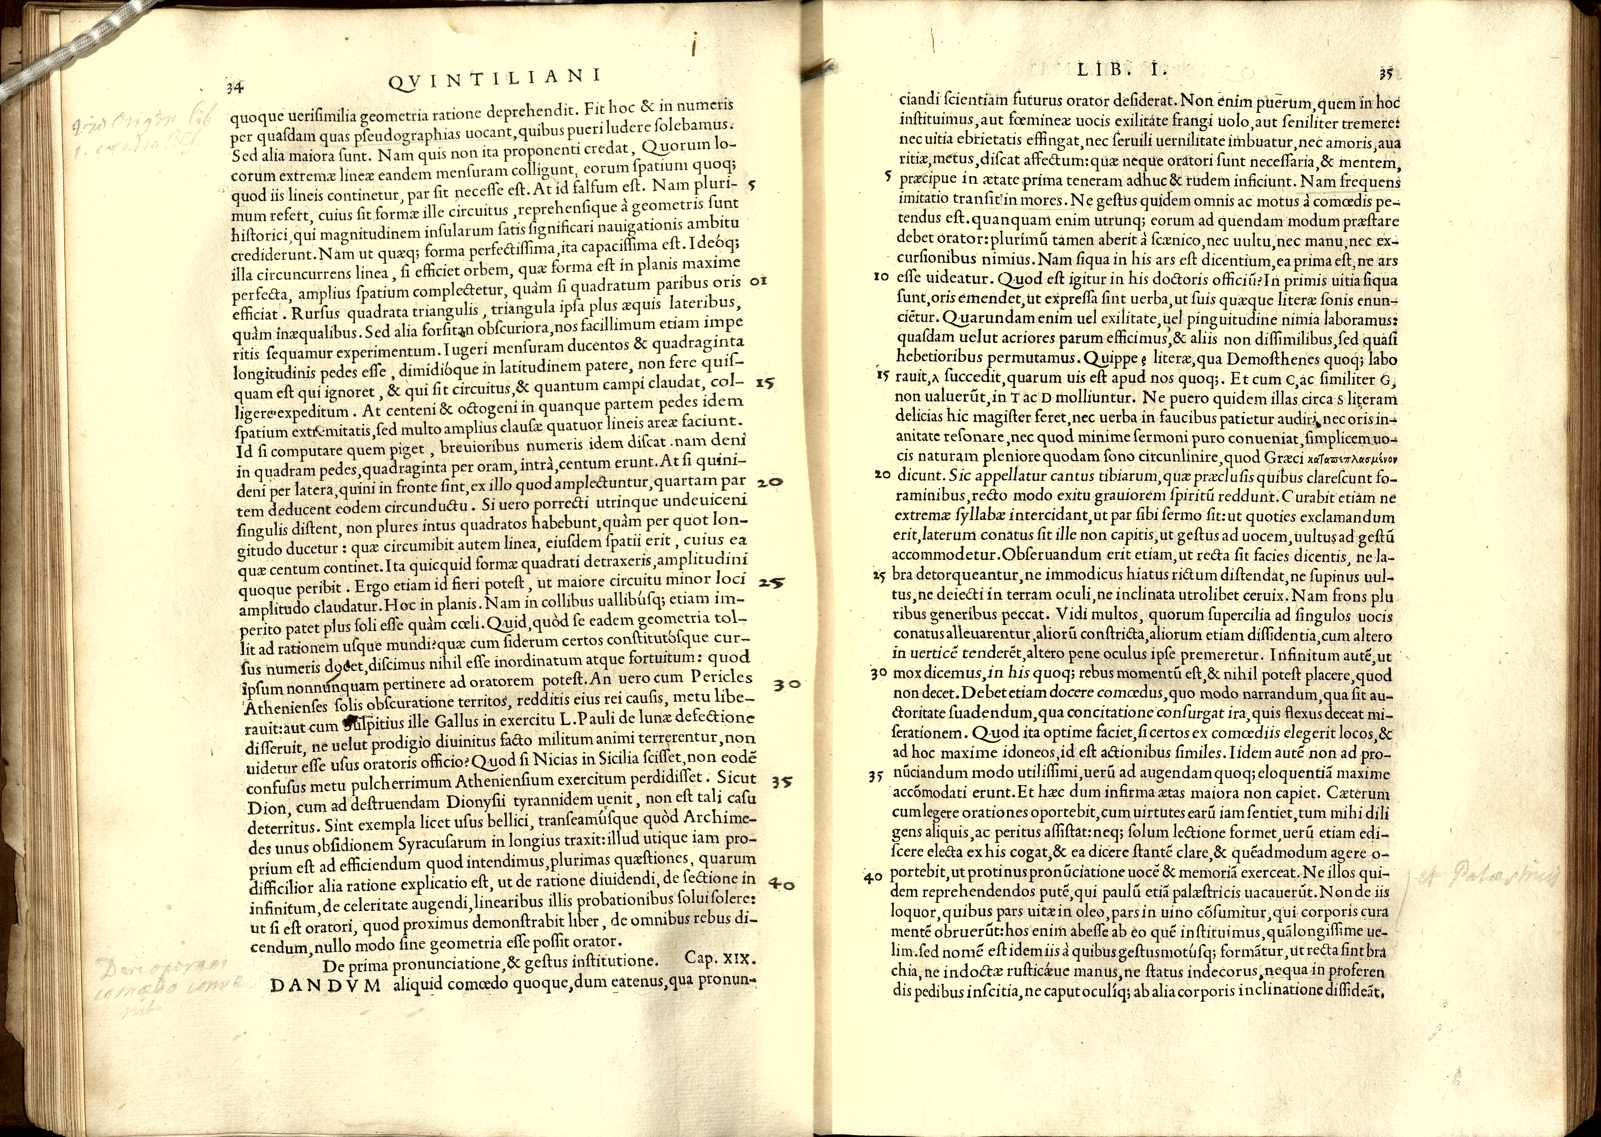 34
QVINTILIANI
quoque uerisimilia geometria ratione deprehendit. Fit hoc & in numeris
per quasdam quas pseudographias uocant, quibus pueri ludere solebamus.
Sed alia maiora sunt. Nam quis non ita proponenti credat, Quorum lo-
corum extremæ lineæ eandem mensuram colligunt, eorum spatium quoq;
quod iis lineis continetur, par sit necesse est. At id falsum est. Nam pluri- 5
mum refert, cuius sit formæ ille circuitus, reprehensique à geometris sunt
historici, qui magnitudinem insularum satis significari nauigationis ambitu
crediderunt. Nam ut quæq; forma perfectissima, ita capacissima est. Ideóq;
illa circuncurrens linea, si efficiet orbem, quæ forma est in planis maxime
perfecta, amplius spatium complectetur, quàm si quadratum paribus oris 01
efficiat. Rursus quadrata triangulis, triangula ipsa plus æquis lateribus,
quàm inæqualibus. Sed alia forsitan obscuriora, nos facillimum etiam impe
ritis sequamur experimentum. Iugeri mensuram ducentos & quadraginta
longitudinis pedes esse, dimidióque in latitudinem patere, non fere quis-
quam est qui ignoret, & qui sit circuitus, & quantum campi claudat, col- 15
ligere expeditum. At centeni & octogeni in quanque partem pedes idem
spatium extremitatis, sed multo amplius clausæ quatuor lineis areæ faciunt.
Id si computare quem piget, breuioribus numeris idem discat. nam deni
in quadram pedes, quadraginta per oram, intrà, centum erunt. At si quini-
deni per latera, quini in fronte sint, ex illo quod amplectuntur, quartam par 20
tem deducent eodem circunductu. Si uero porrecti utrinque undeuiceni
singulis distent, non plures intus quadratos habebunt, quàm per quot lon-
gitudo ducetur: quæ circumibit autem linea, eiusdem spatii erit, cuius ea
quæ centum continet. Ita quicquid formæ quadrati detraxeris, amplitudini
quoque peribit. Ergo etiam id fieri potest, ut maiore circuitu minor loci 25
amplitudo claudatur. Hoc in planis. Nam in collibus uallibúsq; etiam im-
perito patet plus soli esse quàm cœli. Quid, quòd se eadem geometria tol-
lit ad rationem usque mundi? quæ cum siderum certos constitutósque cur-
sus numeris docet, discimus nihil esse inordinatum atque fortuitum: quod
ipsum nonnunquam pertinere ad oratorem potest. An uero cum Pericles 30
Athenienses solis obscuratione territos, redditis eius rei causis, metu libe-
rauit: aut cum Sulpitius ille Gallus in exercitu L. Pauli de lunæ defectione
disseruit, ne uelut prodigio diuinitus facto militum animi terrerentur, non
uidetur esse usus oratoris officio? Quod si Nicias in Sicilia scisset, non eodē
confusus metu pulcherrimum Atheniensium exercitum perdidisset. Sicut 35
Dion, cum ad destruendam Dionysii tyrannidem uenit, non est tali casu
deterritus. Sint exempla licet usus bellici, transeamúsque quòd Archime-
des unus obsidionem Syracusarum in longius traxit: illud utique iam pro-
prium est ad efficiendum quod intendimus, plurimas quæstiones, quarum
difficilior alia ratione explicatio est, ut de ratione diuidendi, de sectione in 40
infinitum, de celeritate augendi, linearibus illis probationibus solui solere:
ut si est oratori, quod proximus demonstrabit liber, de omnibus rebus di-
cendum, nullo modo sine geometria esse possit orator.
De prima pronunciatione, & gestus institutione. Cap. XIX.
DANDVM aliquid comœdo quoque, dum eatenus, qua pronun-
Dare operam
comœdo conve
nit.
LIB. I.
35
ciandi scientiam futurus orator desiderat. Non enim puerum, quem in hoc
instituimus, aut fœmineæ uocis exilitate frangi uolo, aut seniliter tremere:
nec uitia ebrietatis effingat, nec seruili uernilitate imbuatur, nec amoris, aua
ritiæ, metus, discat affectum: quæ neque oratori sunt necessaria, & mentem,
5 præcipue in ætate prima teneram adhuc & rudem inficiunt. Nam frequens
imitatio transit in mores. Ne gestus quidem omnis ac motus à comœdis pe-
tendus est. quanquam enim utrunq; eorum ad quendam modum præstare
debet orator: plurimū tamen aberit à scænico, nec uultu, nec manu, nec ex-
cursionibus nimius. Nam siqua in his ars est dicentium, ea prima est, ne ars
10 esse uideatur. Quod est igitur in his doctoris officiū? In primis uitia siqua
sunt, oris emendet, ut expressa sint uerba, ut suis quæque literæ sonis enun-
ciētur. Quarundam enim uel exilitate, uel pinguitudine nimia laboramus:
quasdam uelut acriores parum efficimus, & aliis non dissimilibus, sed quasi
hebetioribus permutamus. Quippe ρ literæ, qua Demosthenes quoq; labo
15 rauit, λ succedit, quarum uis est apud nos quoq;. Et cum C, ac similiter G,
non ualuerūt, in T ac D molliuntur. Ne puero quidem illas circa S literam
delicias hic magister feret, nec uerba in faucibus patietur audiri, nec oris in-
anitate resonare, nec quod minime sermoni puro conueniat, simplicem uo-
cis naturam pleniore quodam sono circunlinire, quod Græci καταπεπλασμένον
20 dicunt. Sic appellatur cantus tibiarum, quæ præclusis quibus clarescunt fo-
raminibus, recto modo exitu grauiorem spiritū reddunt. Curabit etiam ne
extremæ syllabæ intercidant, ut par sibi sermo sit: ut quoties exclamandum
erit, laterum conatus sit ille non capitis, ut gestus ad uocem, uultus ad gestū
accommodetur. Obseruandum erit etiam, ut recta sit facies dicentis, ne la-
25 bra detorqueantur, ne immodicus hiatus rictum distendat, ne supinus uul-
tus, ne deiecti in terram oculi, ne inclinata utrolibet ceruix. Nam frons plu
ribus generibus peccat. Vidi multos, quorum supercilia ad singulos uocis
conatus alleuarentur, aliorū constricta, aliorum etiam dissidentia, cum altero
in uerticē tenderēt, altero pene oculus ipse premeretur. Infinitum autē, ut
30 mox dicemus, in his quoq; rebus momentū est, & nihil potest placere, quod
non decet. Debet etiam docere comœdus, quo modo narrandum, qua sit au-
ctoritate suadendum, qua concitatione consurgat ira, quis flexus deceat mi-
serationem. Quod ita optime faciet, si certos ex comœdiis elegerit locos, &
ad hoc maxime idoneos, id est actionibus similes. Iidem autē non ad pro-
35 nūciandum modo utilissimi, uerū ad augendam quoq; eloquentiā maxime
accōmodati erunt. Et hæc dum infirma ætas maiora non capiet. Cæterum
cum legere orationes oportebit, cum uirtutes earū iam sentiet, tum mihi dili
gens aliquis, ac peritus assistat: neq; solum lectione formet, uerū etiam edi-
scere electa ex his cogat, & ea dicere stantē clare, & quēadmodum agere o-
40 portebit, ut protinus pronūciatione uocē & memoriā exerceat. Ne illos qui-
dem reprehendendos putē, qui paulū etiā palæstricis uacauerūt. Non de iis
loquor, quibus pars uitæ in oleo, pars in uino cōsumitur, qui corporis cura
mentē obruerūt: hos enim abesse ab eo quē instituimus, quālongissime ue-
lim. sed nomē est idem iis à quibus gestus motúsq; formātur, ut recta sint bra
chia, ne indoctæ rusticáue manus, ne status indecorus, nequa in proferen
dis pedibus inscitia, ne caput oculíq; ab alia corporis inclinatione dissideāt.
et Palæstricis